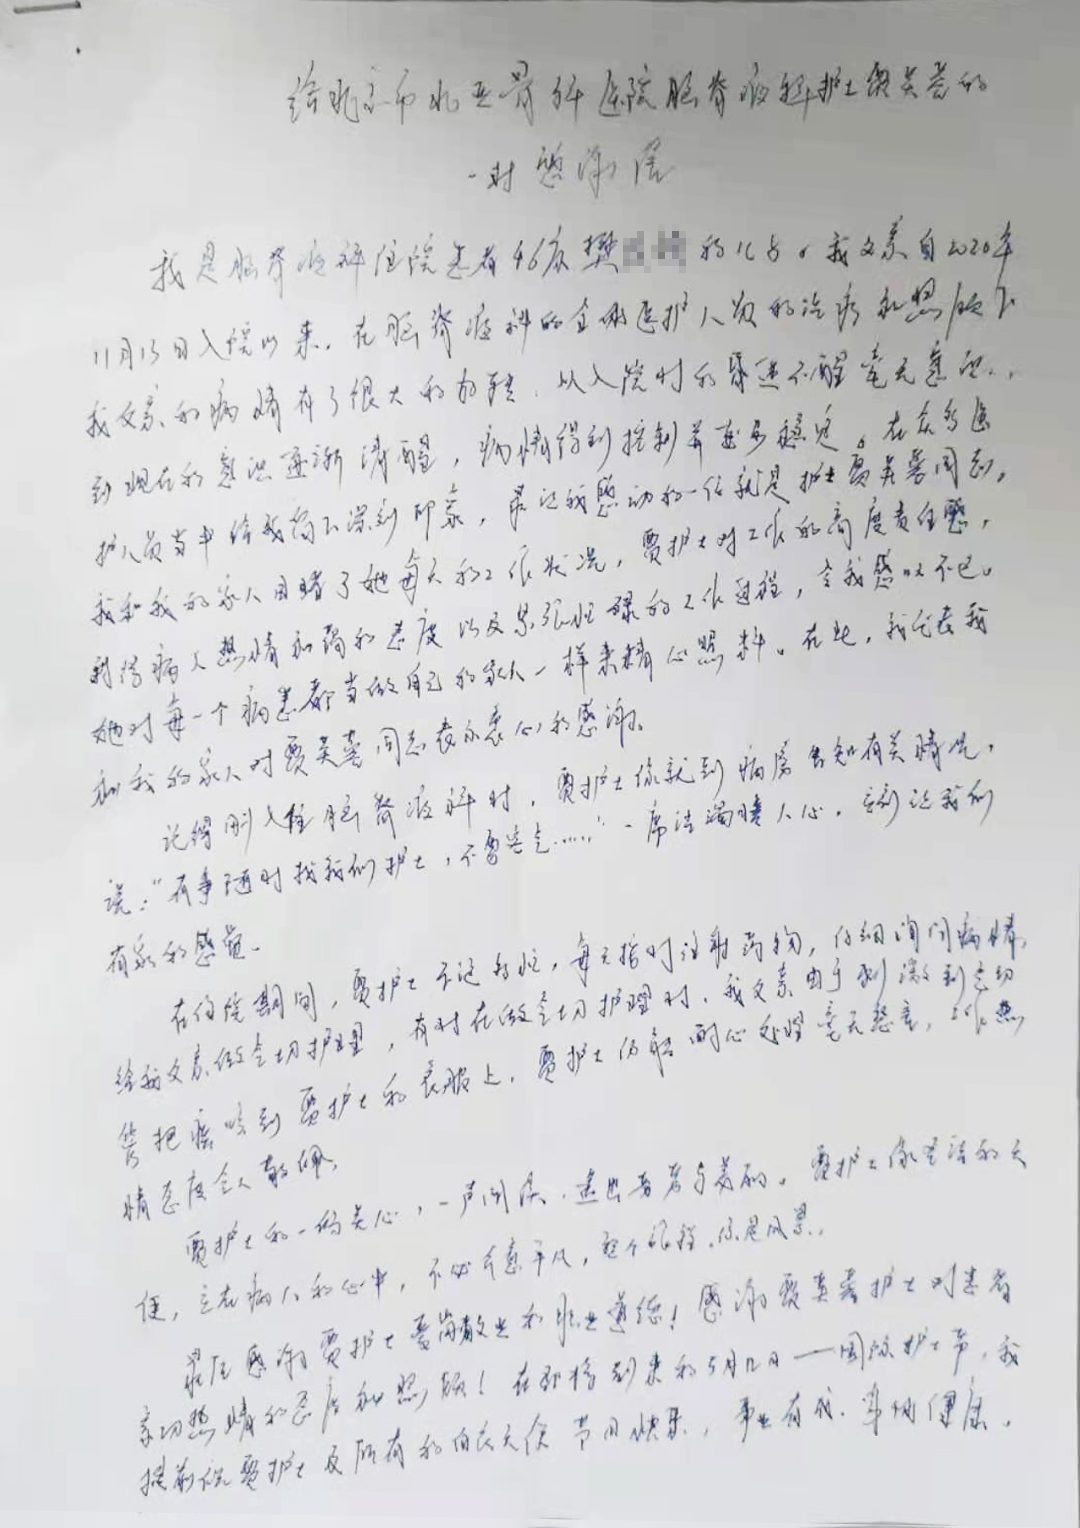 给北京市北亚骨科医院脑脊液科护士贾英春的
一封感谢信
我是脑脊液科住院患者46床樊 的儿子。我父亲自2020年
11月13日入院以来,在脑脊液科的全体医护人员的治疗和照顾下
我父亲的病情有了很大的好转,从入院时的昏迷不醒毫无意识,
到现在的意识逐渐清醒,病情得到控制并逐步稳定。在众多医
护人员当中给我留下深刻印象,最让我感动的一位就是护士贾英 同志。
我和我的家人目睹了她每天的工作状况,贾护士对工作的高度责任感,
对待病人热情和蔼的态度以及紧张忙碌的工作过程,令我感叹不已。
她对每一个病患都当做自己的家人一样来精心照料。在此,我代表我
和我的家人对贾英 同志表示衷心的感谢。
记得刚入住脑脊液科时,贾护士你就到病房告知有关情况,
说:“有事随时找我们护士,不要客气……”一席话温暖人心,立刻让我们
有家的感觉。
在住院期间,贾护士不辞辛忙,每天按时注射药物,仔细询问病情,
给我父亲做气切护理,有时在做气切护理时,我父亲由于刺激到气切
管把痰喷到贾护士的衣服上,贾护士仍能耐心处理毫无怨言,工作热
情态度令人敬佩。
贾护士的一份关心,一声问候,透出善良与美丽。贾护士你圣洁的天
使,立在病人的心中,不必在意平凡,整个旅程,你是风景。
最后感谢贾护士爱岗敬业和职业道德!感谢贾英 护士对患者
亲切热情的态度和照顾!在即将到来的5月12日——国际护士节,我
提前祝贾护士及所有的白衣天使节日快乐,事业有成,身体健康。